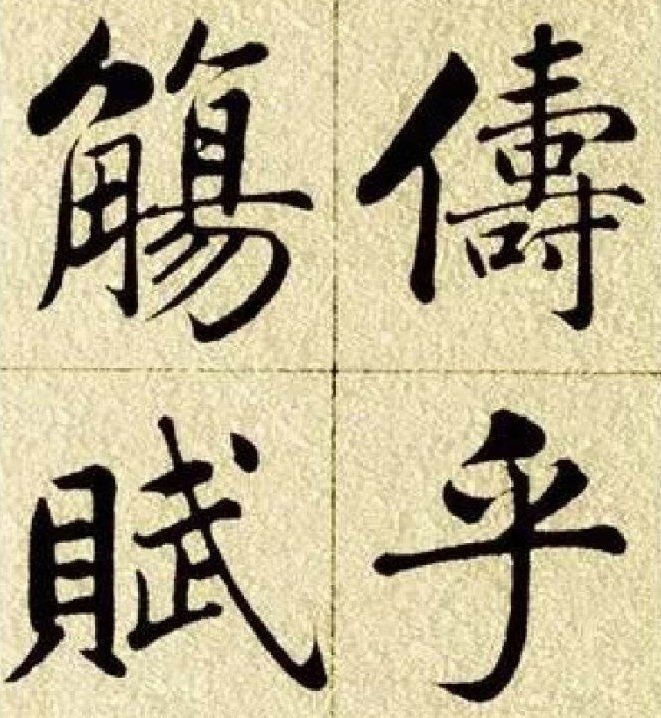 儔乎
觴賦